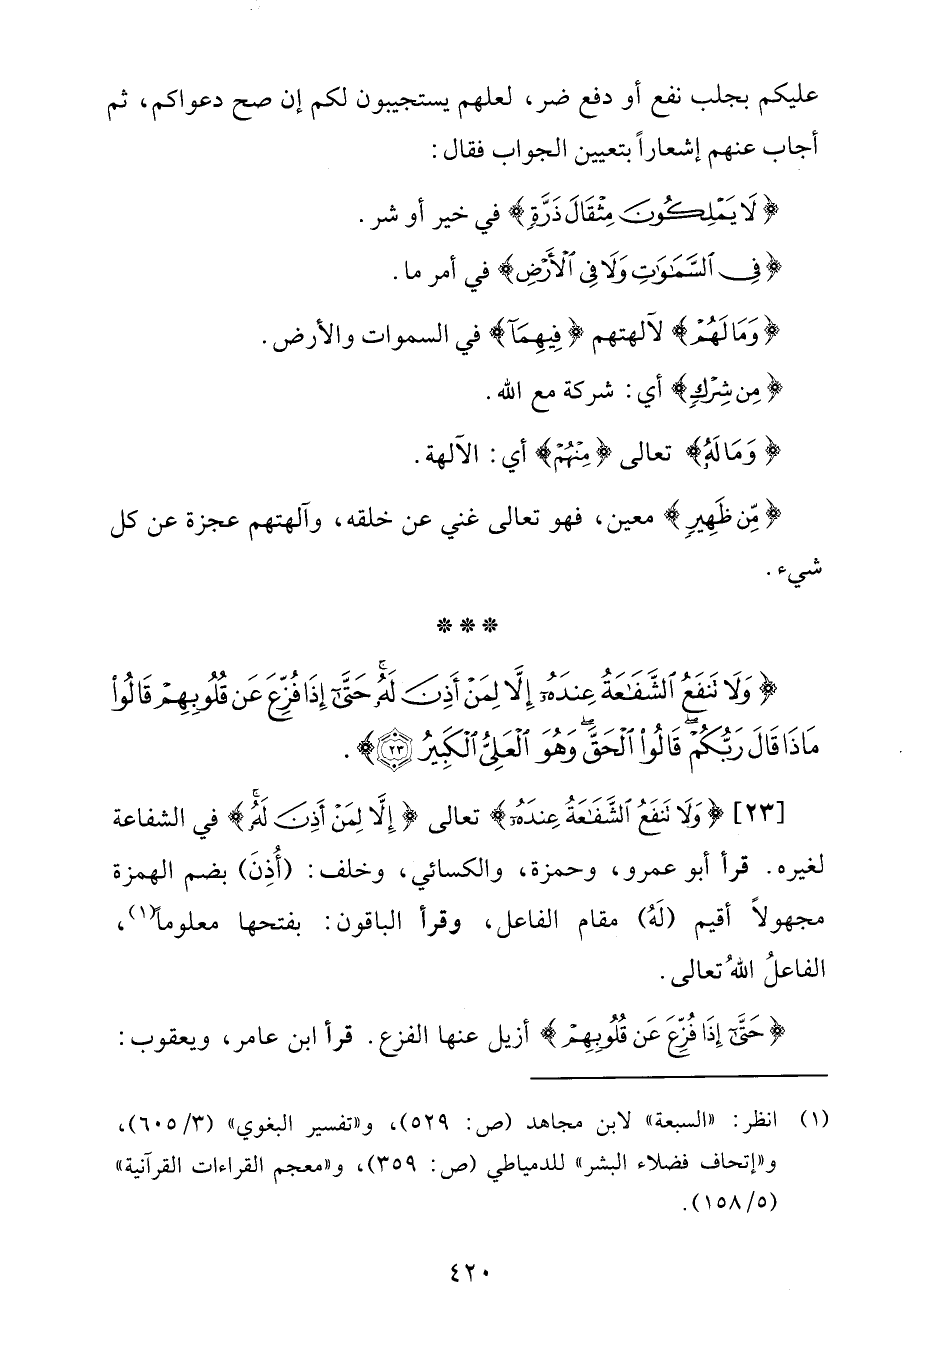 عليكم بجلب نفع أو دفع ضر، لعلهم يستجيبون لكم إن صح دعواكم، ثم
أجاب عنهم إشعاراً بتعيين الجواب فقال:
﴿لَا يَمْلِكُونَ مِثْقَالَ ذَرَّةٍ﴾ في خير أو شر.
﴿فِي السَّمَٰوَٰتِ وَلَا فِي ٱلْأَرْضِ﴾ في أمر ما.
﴿وَمَا لَهُمْ﴾ لآلهتهم ﴿فِيهِمَآ﴾ في السموات والأرض.
﴿مِن شِرْكٍ﴾ أي: شركة مع الله.
﴿وَمَا لَهُۥ﴾ تعالى ﴿مِنْهُمْ﴾ أي: الآلهة.
﴿مِّن ظَهِيرٍ﴾ معين، فهو تعالى غني عن خلقه، وآلهتهم عجزة عن كل
شيء.
***
﴿وَلَا تَنفَعُ ٱلشَّفَٰعَةُ عِندَهُۥٓ إِلَّا لِمَنْ أَذِنَ لَهُۥۚ حَتَّىٰٓ إِذَا فُزِّعَ عَن قُلُوبِهِمْ قَالُوا۟
مَاذَا قَالَ رَبُّكُمْۖ قَالُوا۟ ٱلْحَقَّۖ وَهُوَ ٱلْعَلِىُّ ٱلْكَبِيرُ ٢٣﴾.
[٢٣] ﴿وَلَا تَنفَعُ ٱلشَّفَٰعَةُ عِندَهُۥٓ﴾ تعالى ﴿إِلَّا لِمَنْ أَذِنَ لَهُۥۚ﴾ في الشفاعة
لغيره. قرأ أبو عمرو، وحمزة، والكسائي، وخلف: (أُذِنَ) بضم الهمزة
مجهولاً أقيم (لَهُ) مقام الفاعل، وقرأ الباقون: بفتحها معلوماً(١)،
الفاعلُ اللهُ تعالى.
﴿حَتَّىٰٓ إِذَا فُزِّعَ عَن قُلُوبِهِمْ﴾ أزيل عنها الفزع. قرأ ابن عامر، ويعقوب:
(١) انظر: «السبعة» لابن مجاهد (ص: ٥٢٩)، و«تفسير البغوي» (٣/ ٦٠٥)،
و«إتحاف فضلاء البشر» للدمياطي (ص: ٣٥٩)، و«معجم القراءات القرآنية»
(٥/ ١٥٨).
٤٢٠